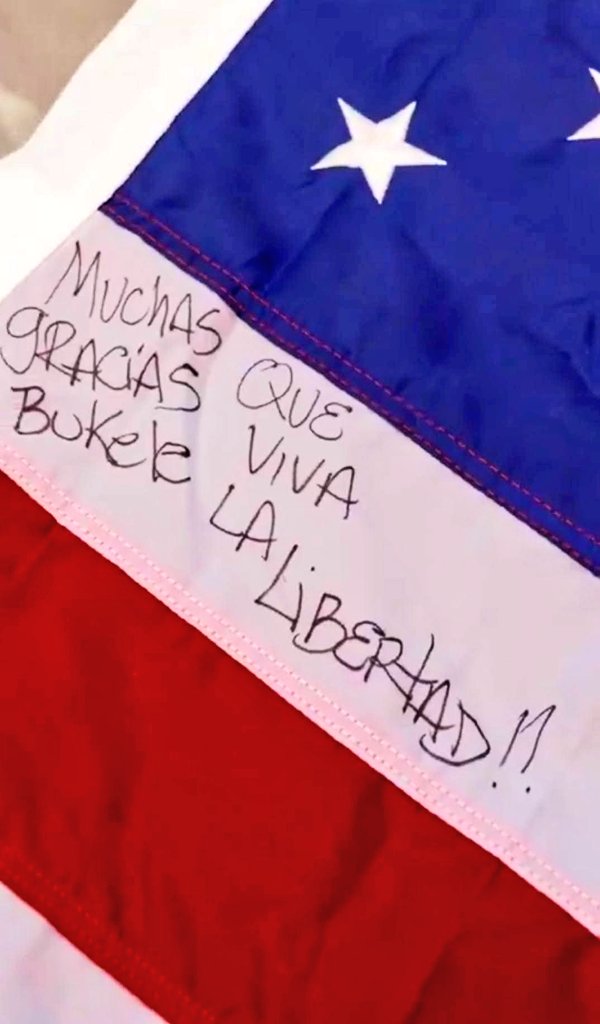 MUCHAS
GRACIAS
BUKele
QUE
VIVA
LA
LiBERTAD!!